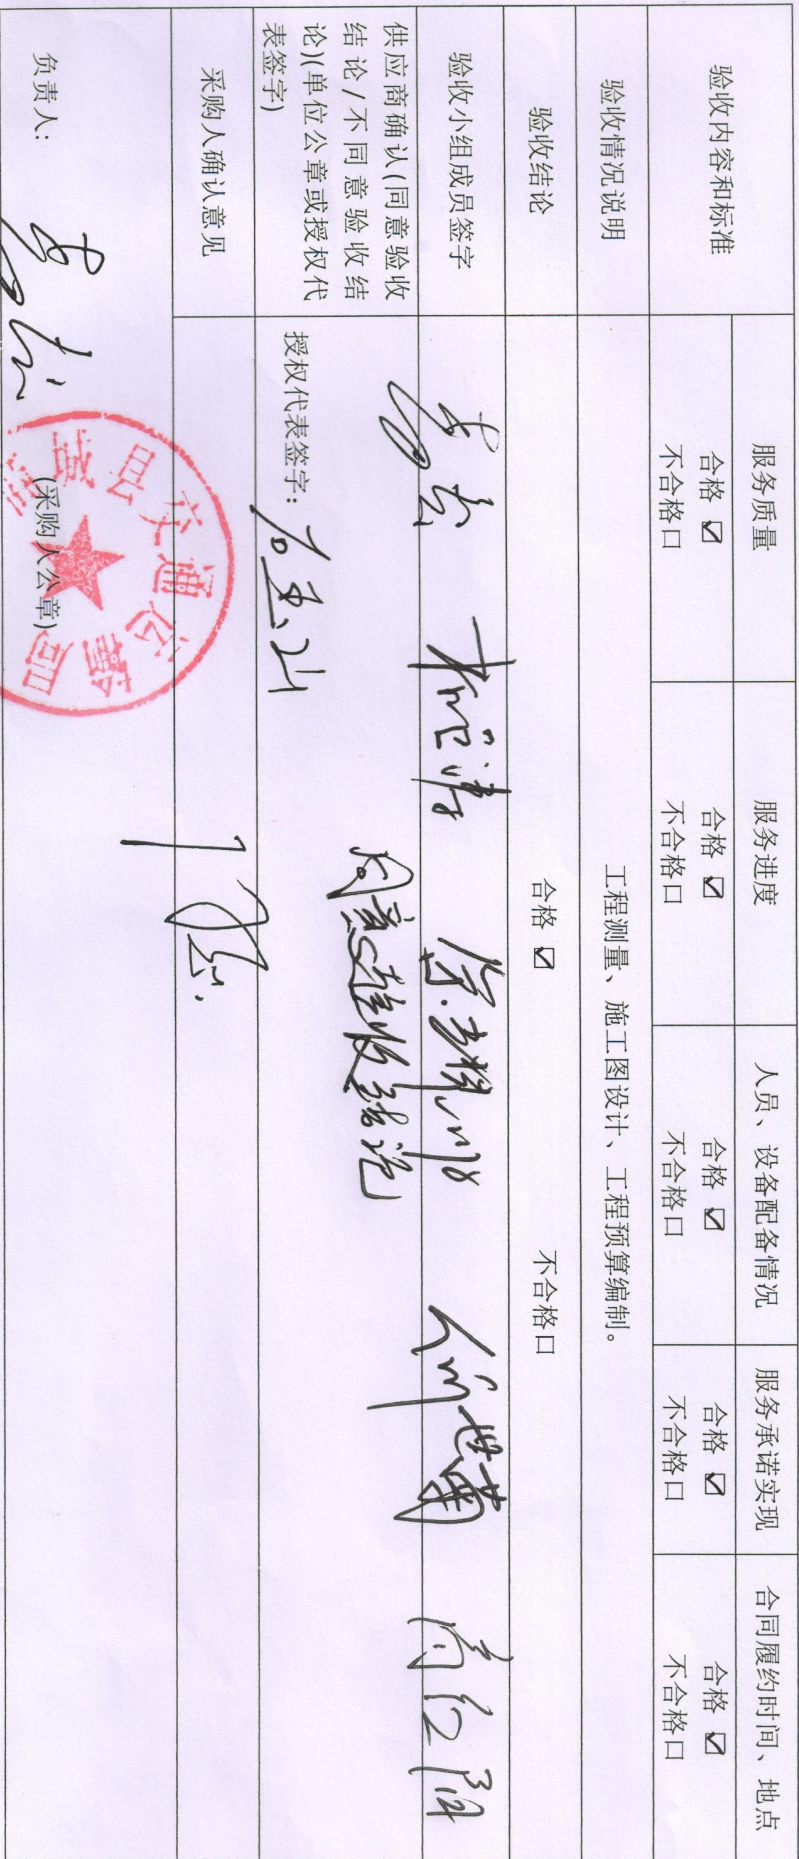 验收内容和标准
服务质量
服务进度
人员、设备配备情况
服务承诺实现
合同履约时间、地点
合格 ☑
不合格口
合格 ☑
不合格口
合格 ☑
不合格口
合格 ☑
不合格口
合格 ☑
不合格口
验收情况说明
工程测量、施工图设计、工程预算编制。
验收结论
合格 ☑
不合格口
验收小组成员签字
供应商确认(同意验收
结论/不同意验收结
论)(单位公章或授权代
表签字)
同意验收结论
授权代表签字:
采购人确认意见
负责人:
(采购人公章)
交通运输局